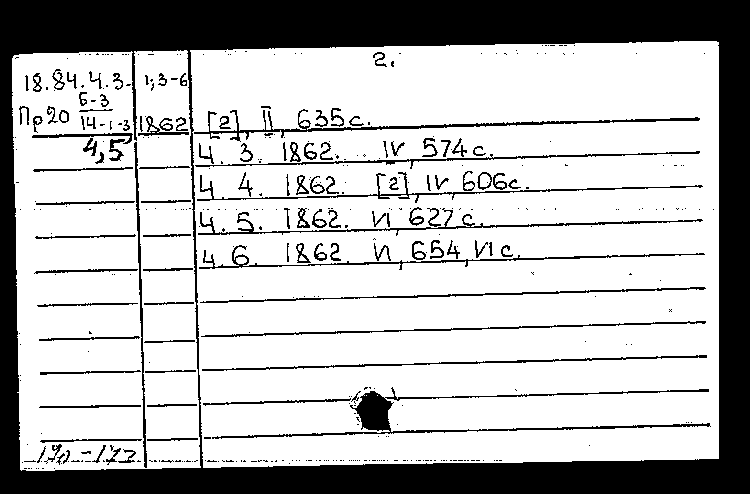 2.
18.84.4.3. 1; 3-6
Пр20 6-3
14-1-3 1862 [2], II, 635 с.
4,5 Ч. 3. 1862. IV, 574 с.
Ч. 4. 1862. [2], IV, 606 с.
Ч. 5. 1862. VI, 627 с.
Ч. 6. 1862. VI, 654, VI с.
170-173